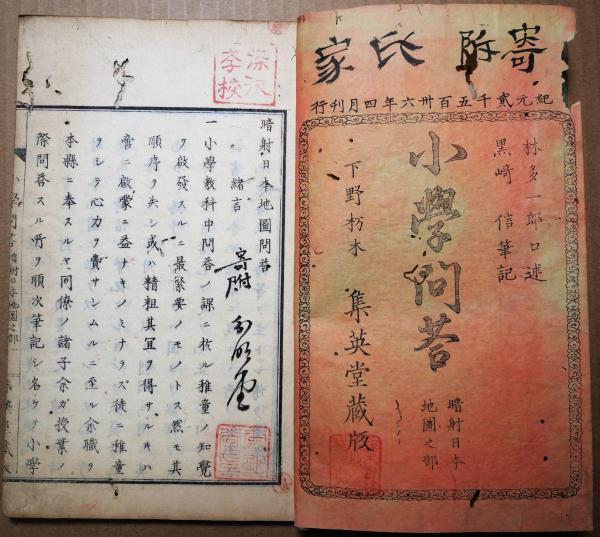 寄附 氏家
紀元貳千五百卅六年四月刊行
林多一郎口述
黒崎 信筆記
小學問荅
暗射日本
地圖之部
下野栃木 集英堂蔵版
深沢
李校
暗射日本地圖問荅
緒言
寄附
一小學教科中問荅ノ課ニ於ル稚童ノ知覺
ヲ啟發スルニ最緊要ノモノトス然モ其
順序ヲ失シ或ハ精粗其宜ヲ得サルキハ
啻ニ啟蒙ニ益ナキノミナラズ徒ニ稚童
ヲシテ心力ヲ費サシムルニ至ル余職ヲ
本縣ニ奉スルヤ同僚ノ諸子余ガ授業ノ
際問荅スル所ヲ順次筆記シ名ケテ小學
問荅 暗射日本地圖之部